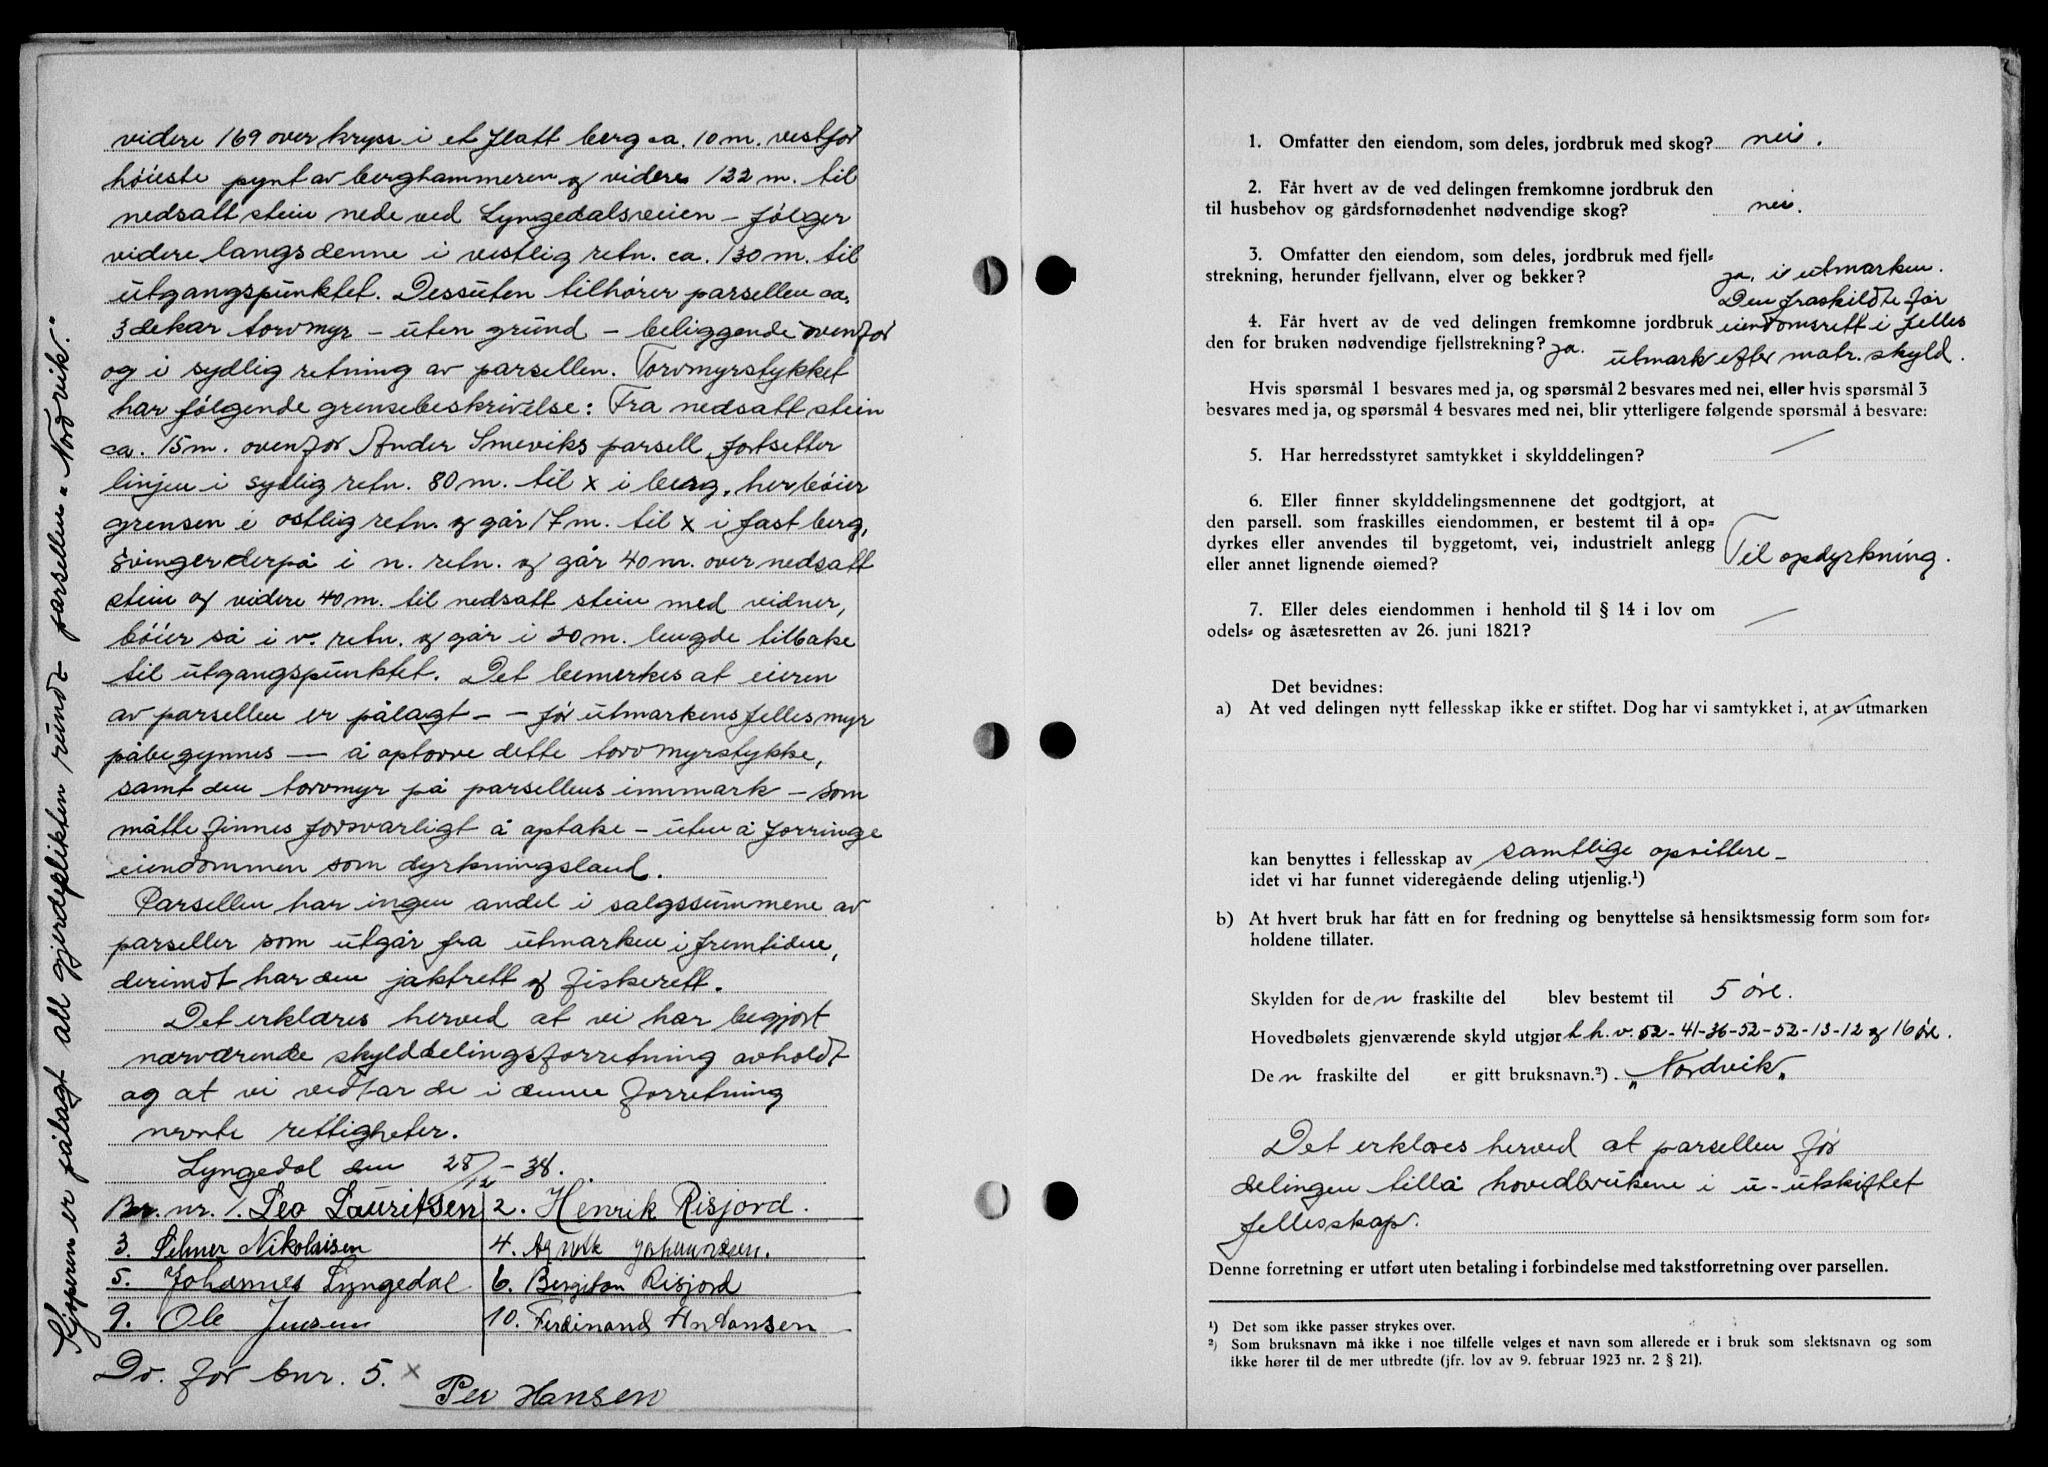 videre 169 over kryss i et flatt berg ca. 10 m. vestfor
höieste pynt av berghammeren og videre 122 m. til
nedsatt stein nede ved Lyngedalsveien – følger
videre langs denne i vestlig retn. ca. 130 m. til
utgangspunktet. Dessuten tilhører parsellen ca.
3 dekar torvmyr – uten grund – beliggende ovenfor
og i sydlig retning av parsellen. Torvmyrstykket
har følgende grensebeskrivelse: Fra nedsatt stein
ca. 15 m. ovenfor Ander Smeviks parsell fortsetter
linjen i sydlig retn. 80 m. til x i berg, her böier
grensen i østlig retn. og går 17 m. til x i fast berg,
svinger derpå i n. retn. og går 40 m. over nedsatt
stein og videre 40 m. til nedsatt stein med vidner,
böier så i v. retn. og går i 30 m. lengde tilbake
til utgangspunktet. Det bemerkes at eieren
av parsellen er pålagt – – før utmarkens fellesmyr
påbegynnes – å optorve dette torvmyrstykke,
samt den torvmyr på parsellens innmark – som
måtte finnes forsvarligt å optake – uten å forringe
eiendommen som dyrkningsland.
Parsellen har ingen andel i salgssummene av
parseller som utgår fra utmarken i fremtiden,
derimot har den jaktrett og fiskerett.
Det erklæres herved at vi har begjært
nærværende skylddelingsforretning avholdt
og at vi vedtar de i denne forretning
nevnte rettigheter.
Lyngedal den 28/12 – 38.
Br. nr. 1. Leo Lauritsen 2. Henrik Risjord.
3. Selmer Nikolaisen 4. Agnete Johannesen.
5. Johannes Lyngedal 6. Bergiton Risjord
9. Ole Jensen 10. Ferdinand Andansen
Do. for bnr. 5. x
Per Hansen
Kjøperen er pålagt all gjerdeplikten rundt parsellen „Nordvik."
1. Omfatter den eiendom, som deles, jordbruk med skog? nei.
2. Får hvert av de ved delingen fremkomne jordbruk den
til husbehov og gårdsfornødenhet nødvendige skog? nei.
3. Omfatter den eiendom, som deles, jordbruk med fjell=
strekning, herunder fjellvann, elver og bekker? ja, i utmarken.
Den fraskildte får
4. Får hvert av de ved delingen fremkomne jordbruk eiendomsrett i felles
den for bruken nødvendige fjellstrekning? ja. utmark efter matr. skyld.
Hvis spørsmål 1 besvares med ja, og spørsmål 2 besvares med nei, eller hvis spørsmål 3
besvares med ja, og spørsmål 4 besvares med nei, blir ytterligere følgende spørsmål å besvare:
5. Har herredsstyret samtykket i skylddelingen? /
6. Eller finner skylddelingsmennene det godtgjort, at
den parsell. som fraskilles eiendommen, er bestemt til å op=
dyrkes eller anvendes til byggetomt, vei, industrielt anlegg
eller annet lignende øiemed? Til opdyrkning.
7. Eller deles eiendommen i henhold til § 14 i lov om
odels= og åsætesretten av 26. juni 1821? /
Det bevidnes:
a) At ved delingen nytt fellesskap ikke er stiftet. Dog har vi samtykket i, at av utmarken
kan benyttes i fellesskap av samtlige opsittere –
idet vi har funnet videregående deling utjenlig.¹)
b) At hvert bruk har fått en for fredning og benyttelse så hensiktsmessig form som for=
holdene tillater.
Skylden for den fraskilte del blev bestemt til 5 øre.
Hovedbølets gjenværende skyld utgjør h.h.v. 52-41-36-52-52-13-12 og 16 øre.
Den fraskilte del er gitt bruksnavn.²) „Nordvik„
Det erklæres herved at parsellen før
delingen tillå hovedbrukene i u-utskiftet
fellesskap.
Denne forretning er utført uten betaling i forbindelse med takstforretning over parsellen.
¹) Det som ikke passer strykes over.
²) Som bruksnavn må ikke i noe tilfelle velges et navn som allerede er i bruk som slektsnavn og som
ikke hører til de mer utbredte (jfr. lov av 9. februar 1923 nr. 2 § 21).